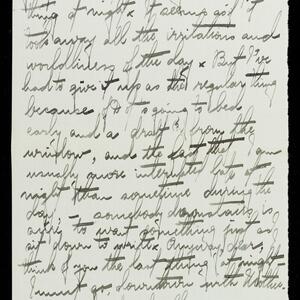 thing at night. It seems as if it
took away all the irritations and
worldliness of the day x But I've
had to give it up as the regular thing
because of s going to bed
early and a draft from the
window, and the fact that I am
usually more interrupted late at
night than sometime during the
day, – somebody downstairs is
sure to want something just as
I sit down to write. Anyway, dear,
I think of you the last thing at night.
I must go downtown with Mother